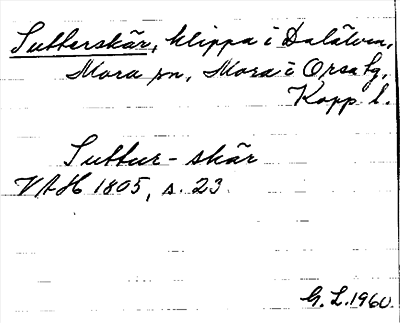 Sutterskär, klippa i Dalälven,
Mora sn, Mora i Orsa tg,
Kopp. l.
Suttur-skär
VAH 1805, s. 23.
G. L. 1960.